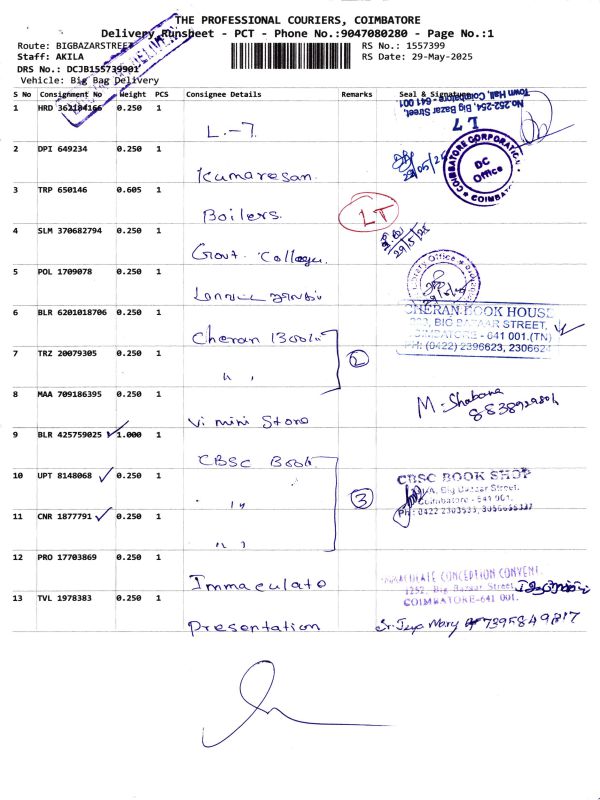 THE PROFESSIONAL COURIERS, COIMBATORE
Delivery Runsheet - PCT - Phone No.:9047080280 - Page No.:1
Route: BIGBAZARSTREET
RS No.: 1557399
Staff: AKILA
RS Date: 29-May-2025
DRS No.: DCJB155739901
Vehicle: Big Bag Delivery
S No Consignment No Weight PCS Consignee Details Remarks Seal & Signature
No.252-254, Big Bazar Street,
Town Hall, Coimbatore - 641 001
L 7
1 HRD 362184166 0.250 1 L.-7
2 DPI 649234 0.250 1 Kumaresan.
29/05/25
COIMBATORE CORPORATION
DC
Office
COIMBAT
3 TRP 650146 0.605 1 Boilers.
LT
4 SLM 370682794 0.250 1 Govt. College.
29/5/25
5 POL 1709078 0.250 1
Library Office
6 BLR 6201018706 0.250 1 Cheran Book
CHERAN BOOK HOUSE
BIG BAZAAR STREET,
COIMBATORE - 641 001.(TN)
PH: (0422) 2396623, 230662
7 TRZ 20079305 0.250 1 " "
2
8 MAA 709186395 0.250 1 Vi mini Store
M. Shabana
9 BLR 425759025 1.000 1 CBSC Book
10 UPT 8148068 0.250 1 " "
3
CBSC BOOK SHOP
Big Bazaar Street,
Coimbatore - 641 001.
11 CNR 1877791 0.250 1 " "
12 PRO 17703869 0.250 1 Immaculate
IMMACULATE CONCEPTION CONVENT
1252, Big Bazaar Street,
COIMBATORE-641 001.
13 TVL 1978383 0.250 1 Presentation